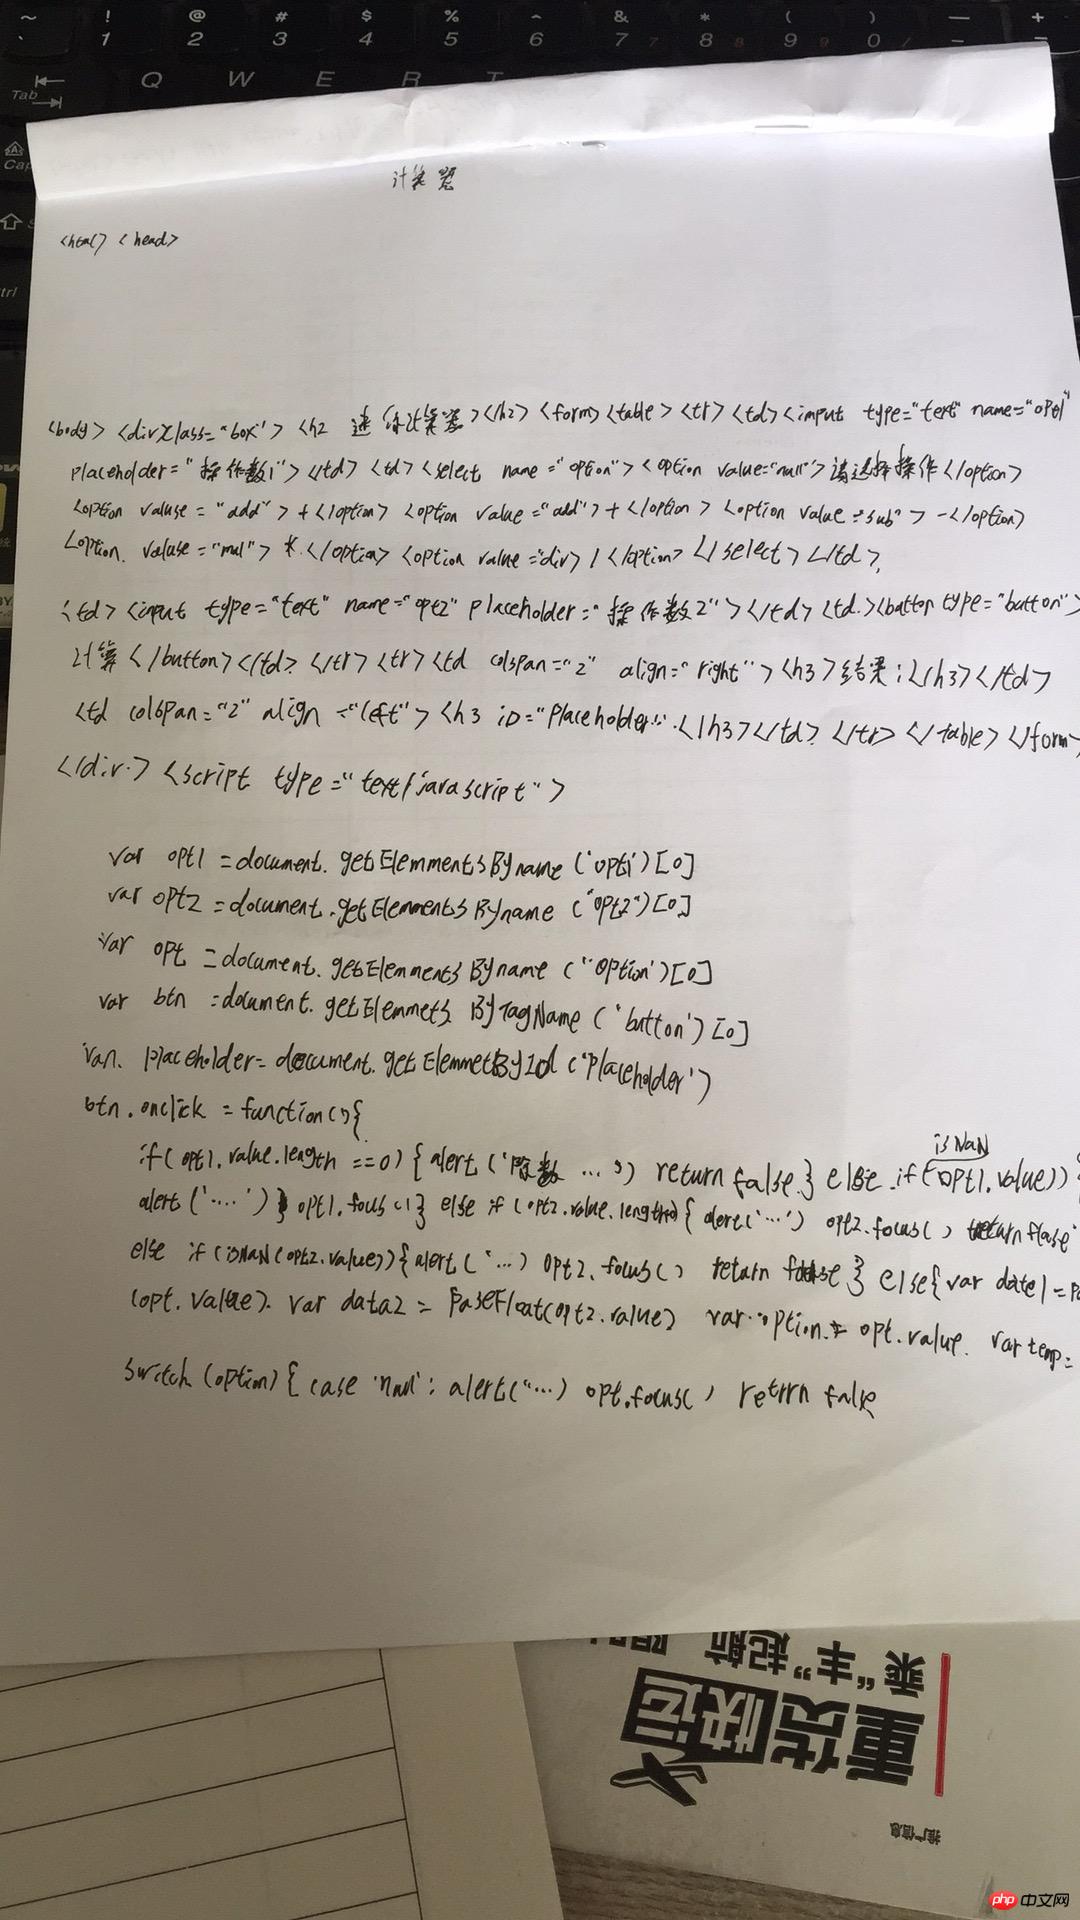 ~ ! @ # $ % ^ & * ( ) — +
` 1 2 3 4 5 6 7 8 9 0 - =
Tab Q W E R T
计算器
<html> <head>
<body> <div class="box"> <h2 迷你计算器></h2> <form> <table> <tr> <td> <input type="text" name="opt1"
placeholder="操作数1"></td> <td> <select name="option"> <option value="null">请选择操作</option>
<option valuse="add"> + </option> <option value="add"> + </option> <option value="sub"> - </option>
<option. valuse="mul"> * </option> <option value="div> / </option> </select> </td>
<td> <input type="text" name="opt2" placeholder="操作数2"></td> <td> <button type="button">
计算</button></td> </tr> <tr> <td colspan="2" align="right"> <h3>结果:</h3></td>
<td colspan="2" align="left"> <h3 iD="placeholder"></h3></td> </tr> </table> </form>
</div> <script type="text/javascript">
var opt1 = document.getElemmentsByname('opt1')[0]
var opt2 = document.getElemmentsByname('opt2')[0]
var opt = document.getElemmentsByname("option')[0]
var btn = document.getElemmetsByTagName('button')[0]
var placeholder = document.getElemmetById('placeholder')
btn.onclick = function(){
isNaN
if(opt1.value.length ==0) { alert('除数 ...') return false } else if(opt1.value)) {
alert('....') } opt1.focus() } else if (opt2.value.length { alert('...') opt2.focus() return flase
else if (isNaN(opt2.value)) { alert('...) opt2.focus() return false } else { var date1 = Pa
(opt.value). var data2 = PaseFloat(opt2.value) var option = opt.value. var temp=
switch (option) { case 'null': alert("...) opt.focus() return false
乘“丰”起航
重货快运
推广信息
php 中文网